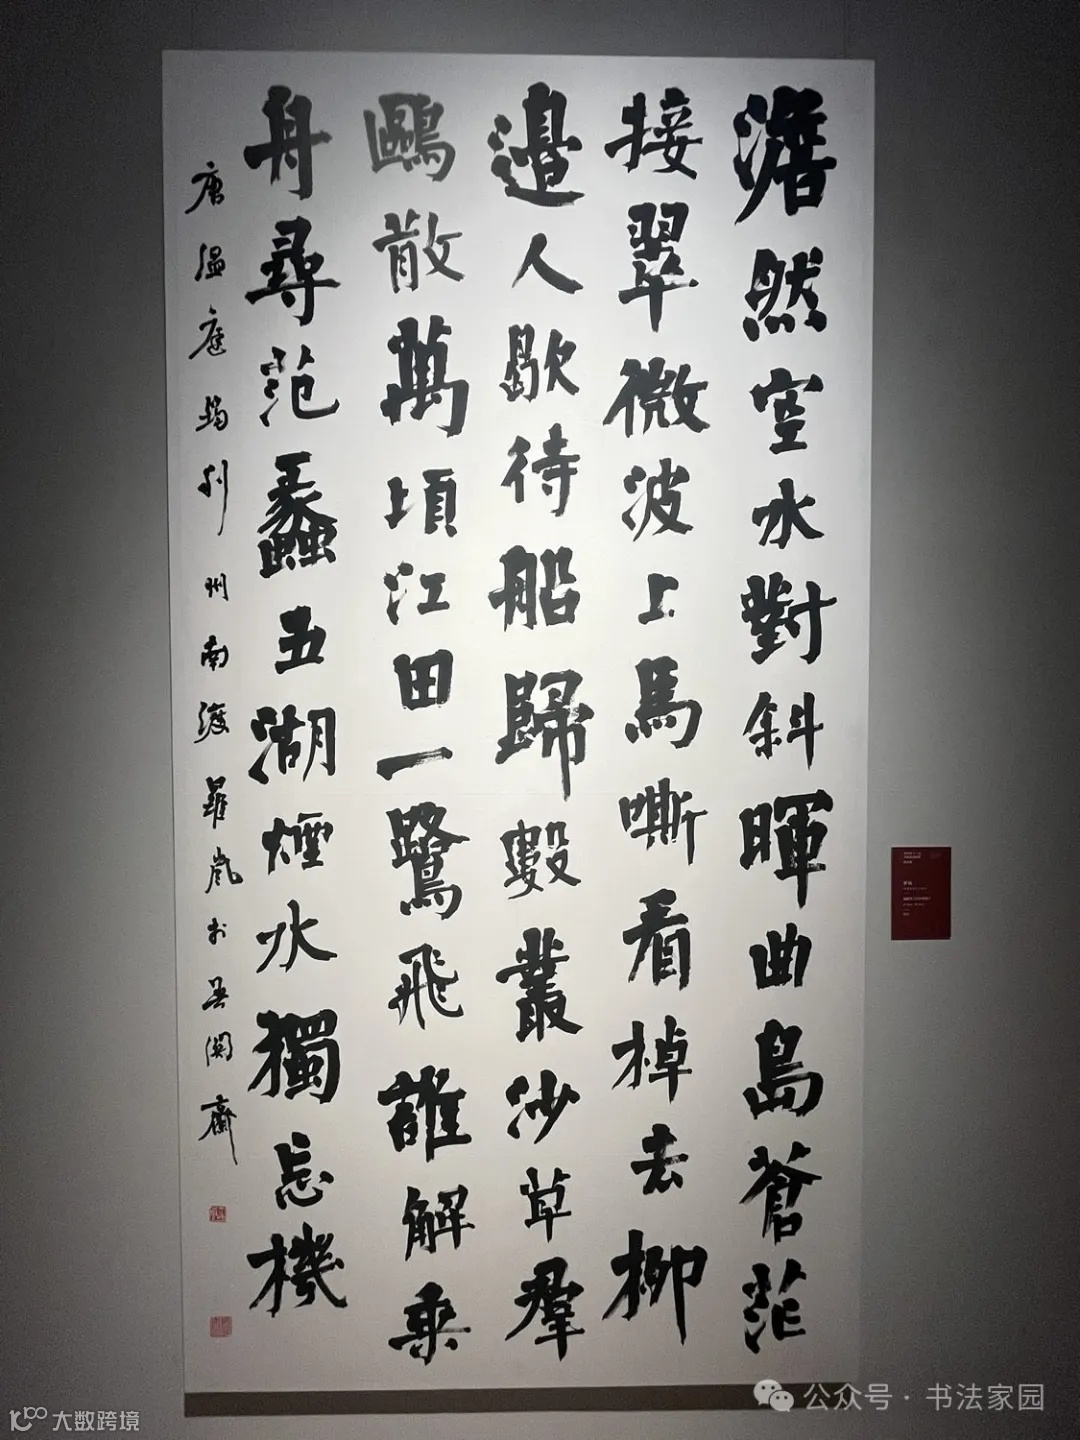 澹然空水對斜暉曲島蒼茫
接翠微波上馬嘶看棹去柳
邊人歇待船歸數叢沙草羣
鷗散萬頃江田一鷺飛誰解乘
舟尋范蠡五湖煙水獨忘機
唐溫庭筠利州南渡羅嵐於齋
公众号 · 书法家园
大数跨境